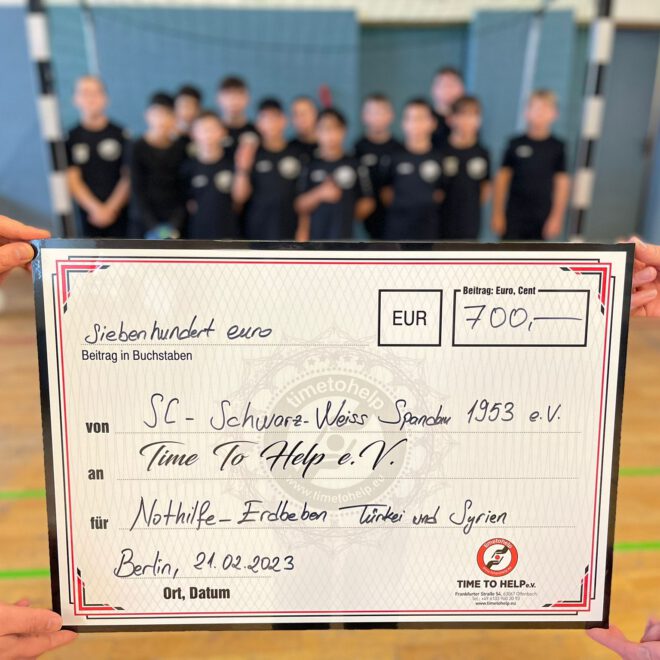 Beitrag: Euro, Cent
siebenhundert euro
EUR
700,—
Beitrag in Buchstaben
von SC - Schwarz-Weiss Spandau 1953 e.V.
an Time To Help e.V.
für Nothilfe - Erdbeben Türkei und Syrien
Berlin, 21.02.2023
Ort, Datum
timetohelp
www.timetohelp.eu
timetohelp
TIME TO HELP e.V.
Frankfurter Straße 54, 63067 Offenbach
www.timetohelp.eu